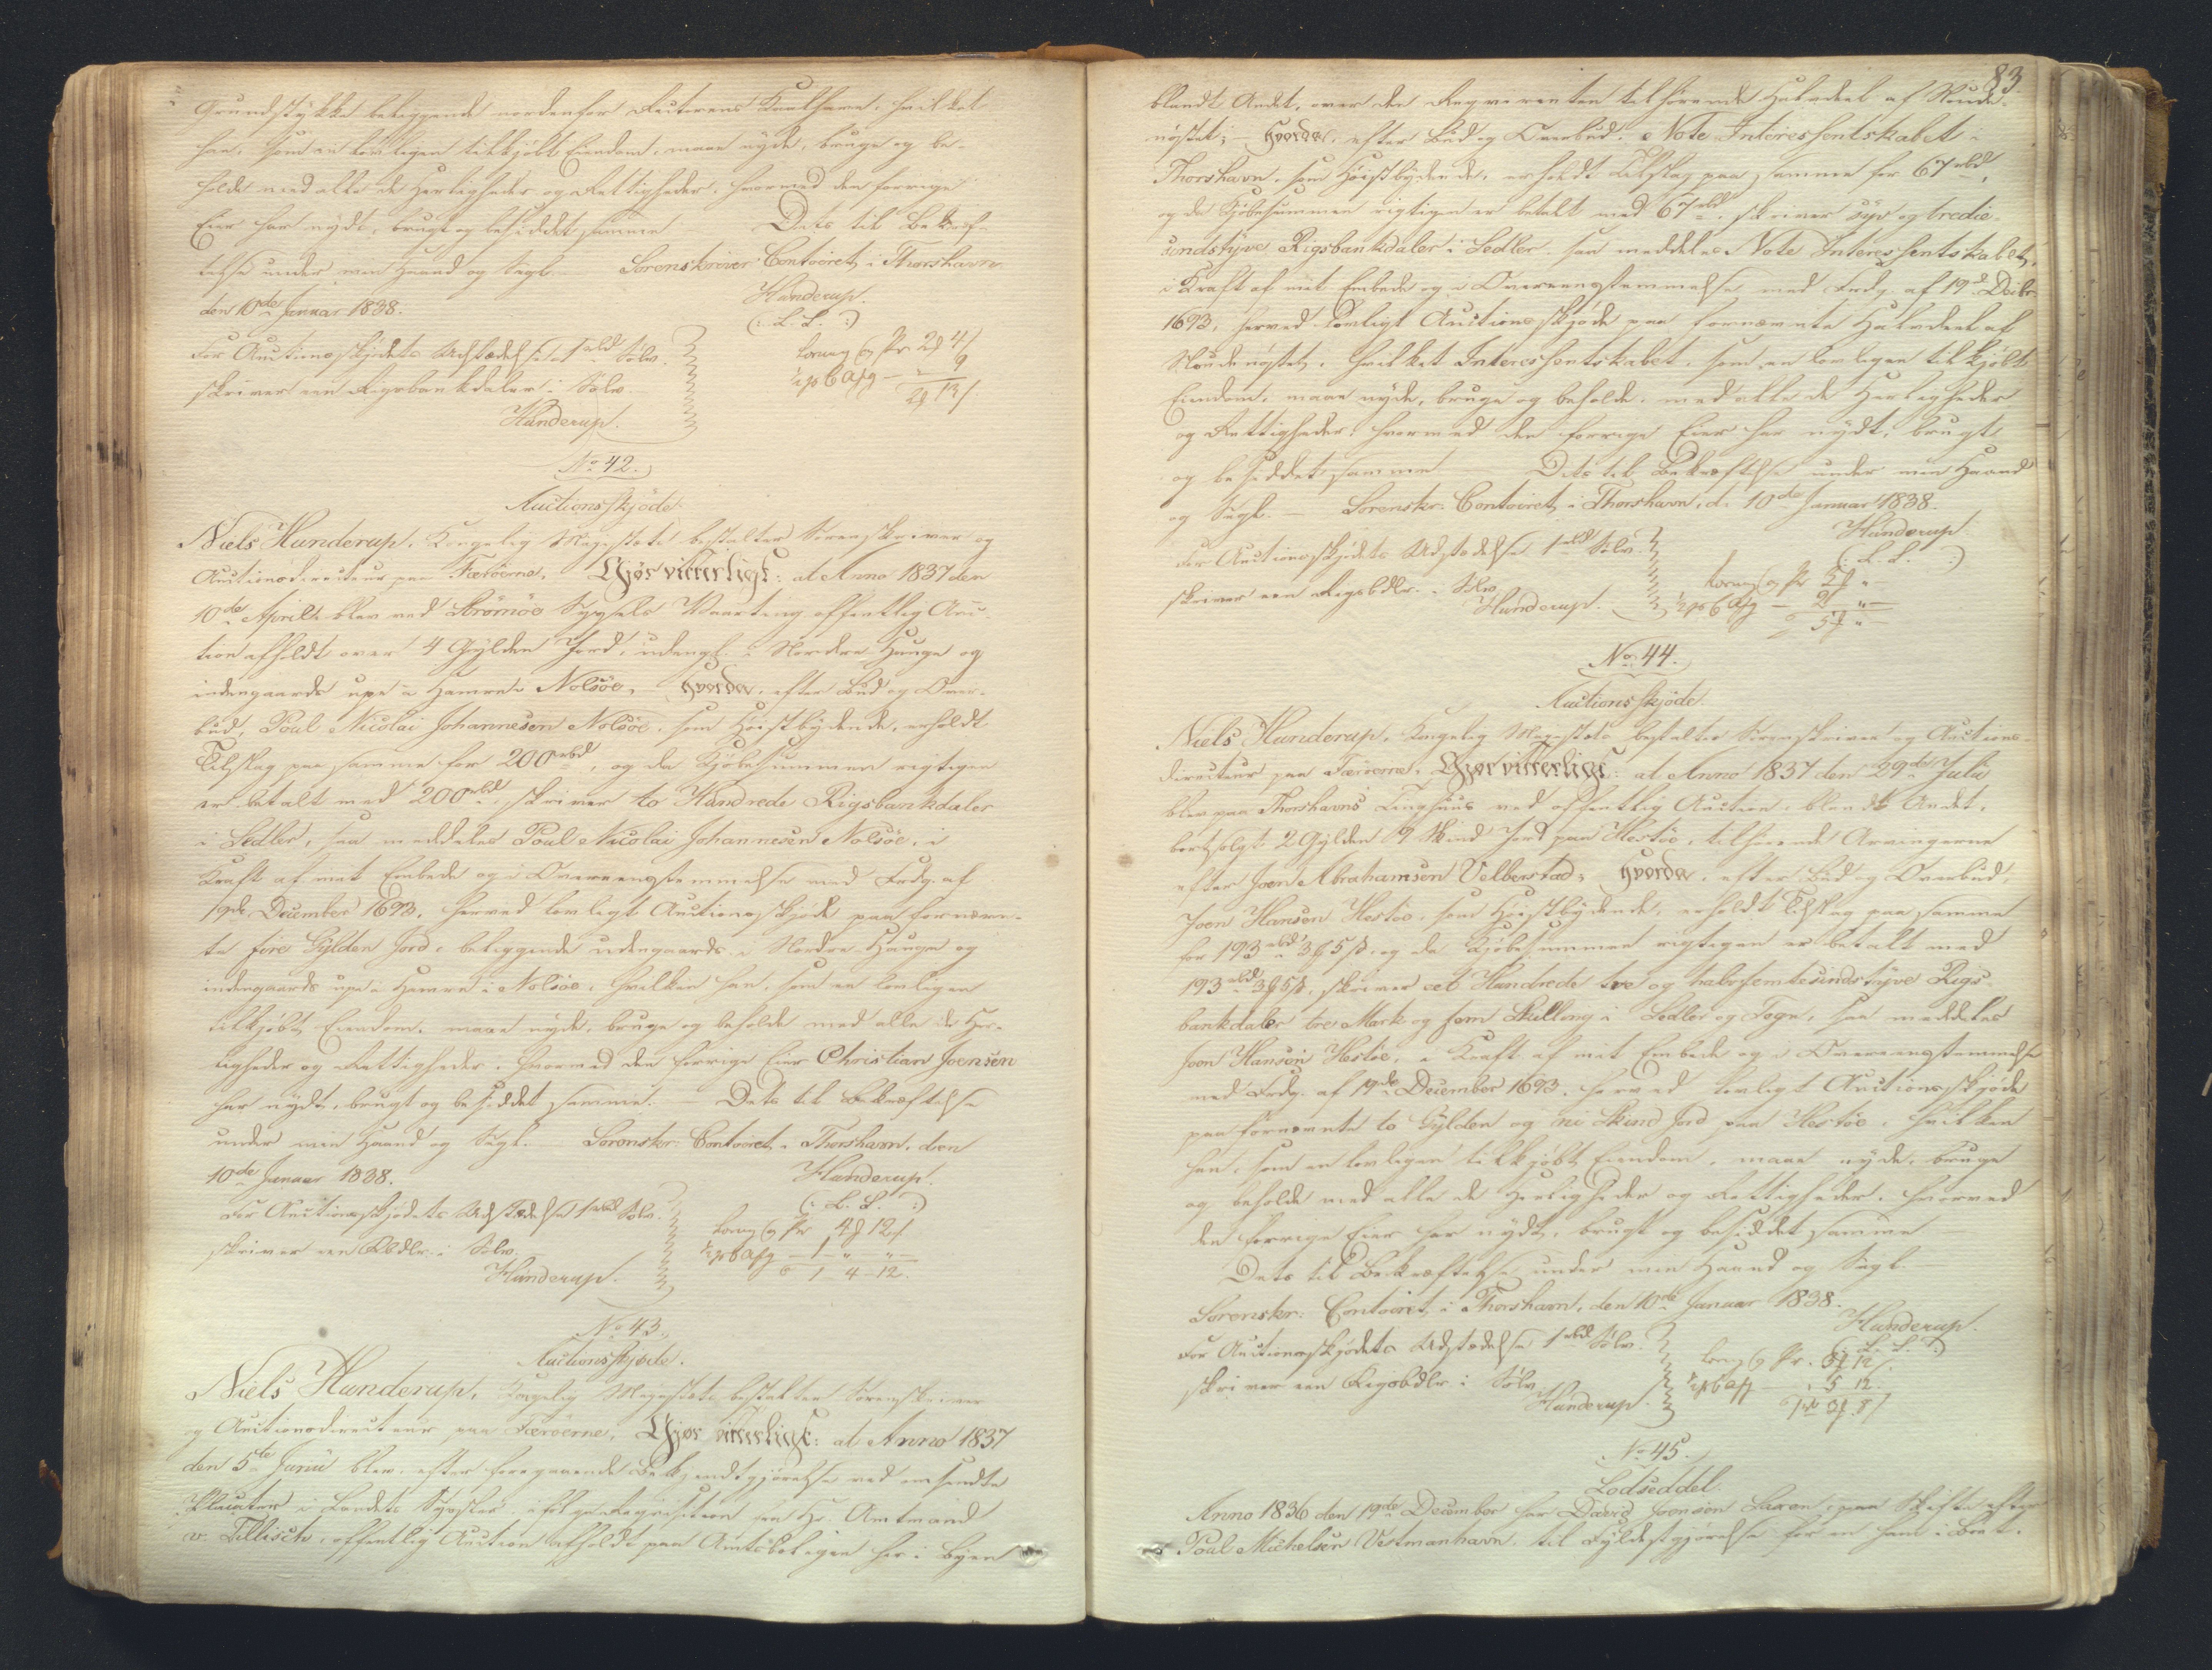 Grundstykke beliggende nordenfor Rectorens Kaalhave, hvilket
han, som en lovligen tilkjøbt Eiendom, maae nyde, bruge og be-
holde med alle de Herligheder og Rettigheder, hvormed den forrige
Eier har nydt, brugt og besiddet samme. Dets til Bekræf-
telse under min Haand og Segl. Sorenskriver Contoiret i Thorshavn
den 10de Januar 1838. Hunderup.
(: L. S. :)
For Auctionsskjødets Udstædelse 1 rbd Sølv
skriver een Rigsbankdaler i Sølv.
Hunderup.
2 4
½ p C Afg - " 9
2 13
No 42.
Auctionsskjøde.
Niels Hunderup, Kongelig Majestæts bestalter Sorenskriver og
Auctionsdirecteur paa Færöerne, Gjør vitterligt: at Anno 1837 den
10de April blev ved Strømöe Syssels Vaarting offentlig Auc-
tion afholdt over 4 Gylden Jord, udengs. i Nordre Hauge og
indengaards uppe i Hamre i Nolsöe, hvorda, efter Bud og Over-
bud, Poul Nicolai Johannesen Nolsöe, som Høistbydende, erholdt
Tilslag paa samme for 200 rbd, og da Kjøbesummen rigtigen
er betalt med 200 rbd, skriver to Hundrede Rigsbankdaler
i Sedler, saa meddeles Poul Nicolai Johannesen Nolsöe, i
Kraft af mit Embede og i Overeensstemmelse med Frdg. af
19de December 1693, herved lovligt Auctionsskjøde paa fornævn-
te fire Gylden Jord, beliggende udengaards i Nordre Hauge og
indengaards uppe i Hamre i Nolsöe, hvilken han, som en lovligen
tilkjøbt Eiendom, maae nyde, bruge og beholde med alle de Her-
ligheder og Rettigheder, hvormed den forrige Eier Christian Joensen
har nydt, brugt og besiddet samme. - Dets til Bekræftelse
under min Haand og Segl. Sorenskr. Contoiret i Thorshavn, den
10de Januar 1838. Hunderup.
(: L. S. :)
For Auctionsskjødets Udstædelse 1 rbd Sølv.
skriver een Rbdlr. i Sølv.
Hunderup.
4 12
½ p C Afg - 1 - " - "
1 - 4 - 12.
No 43.
Auctionsskjøde.
Niels Hunderup, Kongelig Majestæts bestalter Sorenskriver
og Auctionsdirecteur paa Færöerne, Gjør vitterligt: at Anno 1837
den 5te Junii blev, efter foregaaende Bekjendtgjørelse ved omsendte
Placater i Landets Sysler, ifølge Reqvisition fra Hr. Amtmand
v. Tillisch, offentlig Auction afholdt paa Amtsboligen her i Byen
83.
blandt Andet, over den Reqvirenten tilhørende Halvdeel af Skinde-
nøstet; - hvorda, efter Bud og Overbud, Note Interessentskabet i
Thorshavn, som Høistbydende, erholdt Tilslag paa samme for 67 rbd,
og da Kjøbesummen rigtigen er betalt med 67 rbd, skriver syv og tredie-
sindstyve Rigsbankdaler i Sedler, saa meddeles Note Interessentskabet,
i Kraft af mit Embede og i Overeensstemmelse med Frdg. af 19de Decbr.
1693, herved lovligt Auctionsskjøde paa fornævnte Halvdeel af
hvilket Interessentskabet, som en lovligen tilkjøbt
Eiendom, maae nyde, bruge og beholde, med alle de Herligheder
og Rettigheder, hvormed den forrige Eier har nydt, brugt
og besiddet samme. Dets til Bekræftelse under min Haand
og Segl. - Sorenskr. Contoiret i Thorshavn, d. 10de Januar 1838.
Hunderup.
(: L. S. :)
For Auctionsskjødets Udstædelse 1 rbd Sølv.
skriver een Rigsbdlr. i Sølv.
Hunderup.
3 "
½ p C Afg - 2 "
5 "
No 44.
Auctionsskjøde.
Niels Hunderup, Kongelig Majestæts bestalter Sorenskriver og Auctions-
directeur paa Færöerne, Gjør vitterligt: at Anno 1837 den 29de Julii
blev paa Thorshavns Tinghuus ved offentlig Auction, blandt Andet,
bortsolgt 2 Gylden 9 Skind Jord paa Hestöe, tilhørende Arvingerne
efter Joen Abrahamsen Velberstad; hvorda, efter Bud og Overbud,
Joen Hansen Hestöe, som Høistbydende, erholdt Tilslag paa samme
for 193 rbd 3 5 , og da Kjøbesummen rigtigen er betalt med
193 rbd 3 5 , skriver eet Hundrede tre og halvfemtesindstyve Rigs-
bankdaler tre Mark og fem Skilling i Sedler og Tegn, saa meddeles
Joen Hansen Hestöe, i Kraft af mit Embede og i Overeensstemmelse
med Frdg. af 19de December 1693, herved lovligt Auctionsskjøde
paa fornævnte to Gylden og ni Skind Jord paa Hestöe, hvilken
han, som en lovligen tilkjøbt Eiendom, maae nyde, bruge
og beholde med alle de Herligheder og Rettigheder, hvormed
den forrige Eier har nydt, brugt og besiddet samme
Dets til Bekræftelse under min Haand og Segl.
Sorenskr. Contoiret i Thorshavn, den 10de Januar 1838.
Hunderup.
(: L. S. :)
For Auctionsskjødets Udstædelse 1 rbd Sølv.
skriver een Rigsbdlr. i Sølv
Hunderup.
3 12
½ p C Afg 5 12
3 8
No 45.
Lodseddel.
Anno 1836 den 19de December har David Joensen Saxen, paa Skifte efter
Poul Michelsen Vestmanhavn, til Fyldestgjørelse for en ham i Boet.